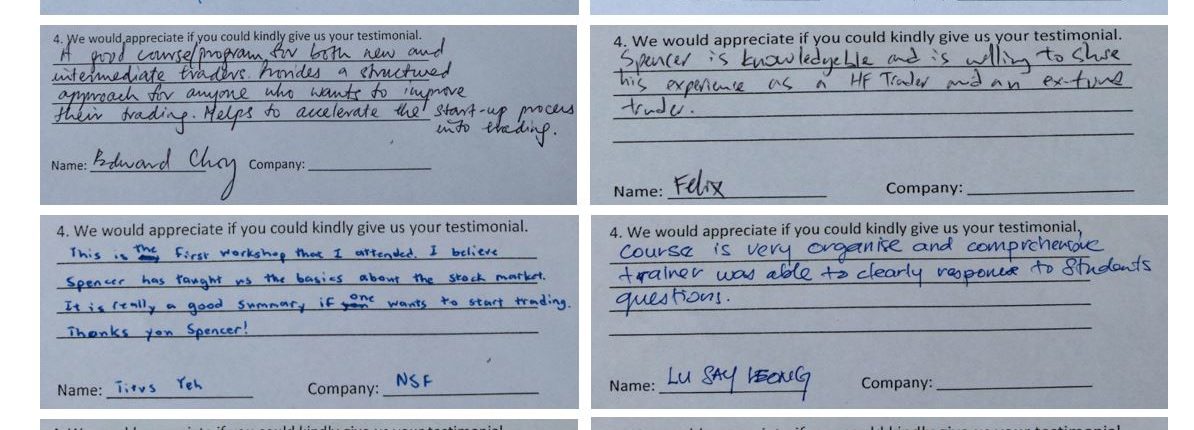 4. We would appreciate if you could kindly give us your testimonial.
A good course/program for both new and
intermediate traders. Provides a structured
approach for anyone who wants to improve
their trading. Helps to accelerate the start-up process
into trading.
Name: Edward Choy Company:
4. We would appreciate if you could kindly give us your testimonial.
Spencer is knowledgeble and is willing to share
his experience as a HF Trader and an ex-fund
trader.
Name: Felix Company:
4. We would appreciate if you could kindly give us your testimonial.
This is the first workshop that I attended. I believe
Spencer has taught us the basics about the stock market.
It is really a good summary if one wants to start trading.
Thanks you Spencer!
Name: Titus Yeh Company: NSF
4. We would appreciate if you could kindly give us your testimonial,
course is very organise and comprehensive
trainer was able to clearly response to students
questions.
Name: LU SAY LEONG Company: